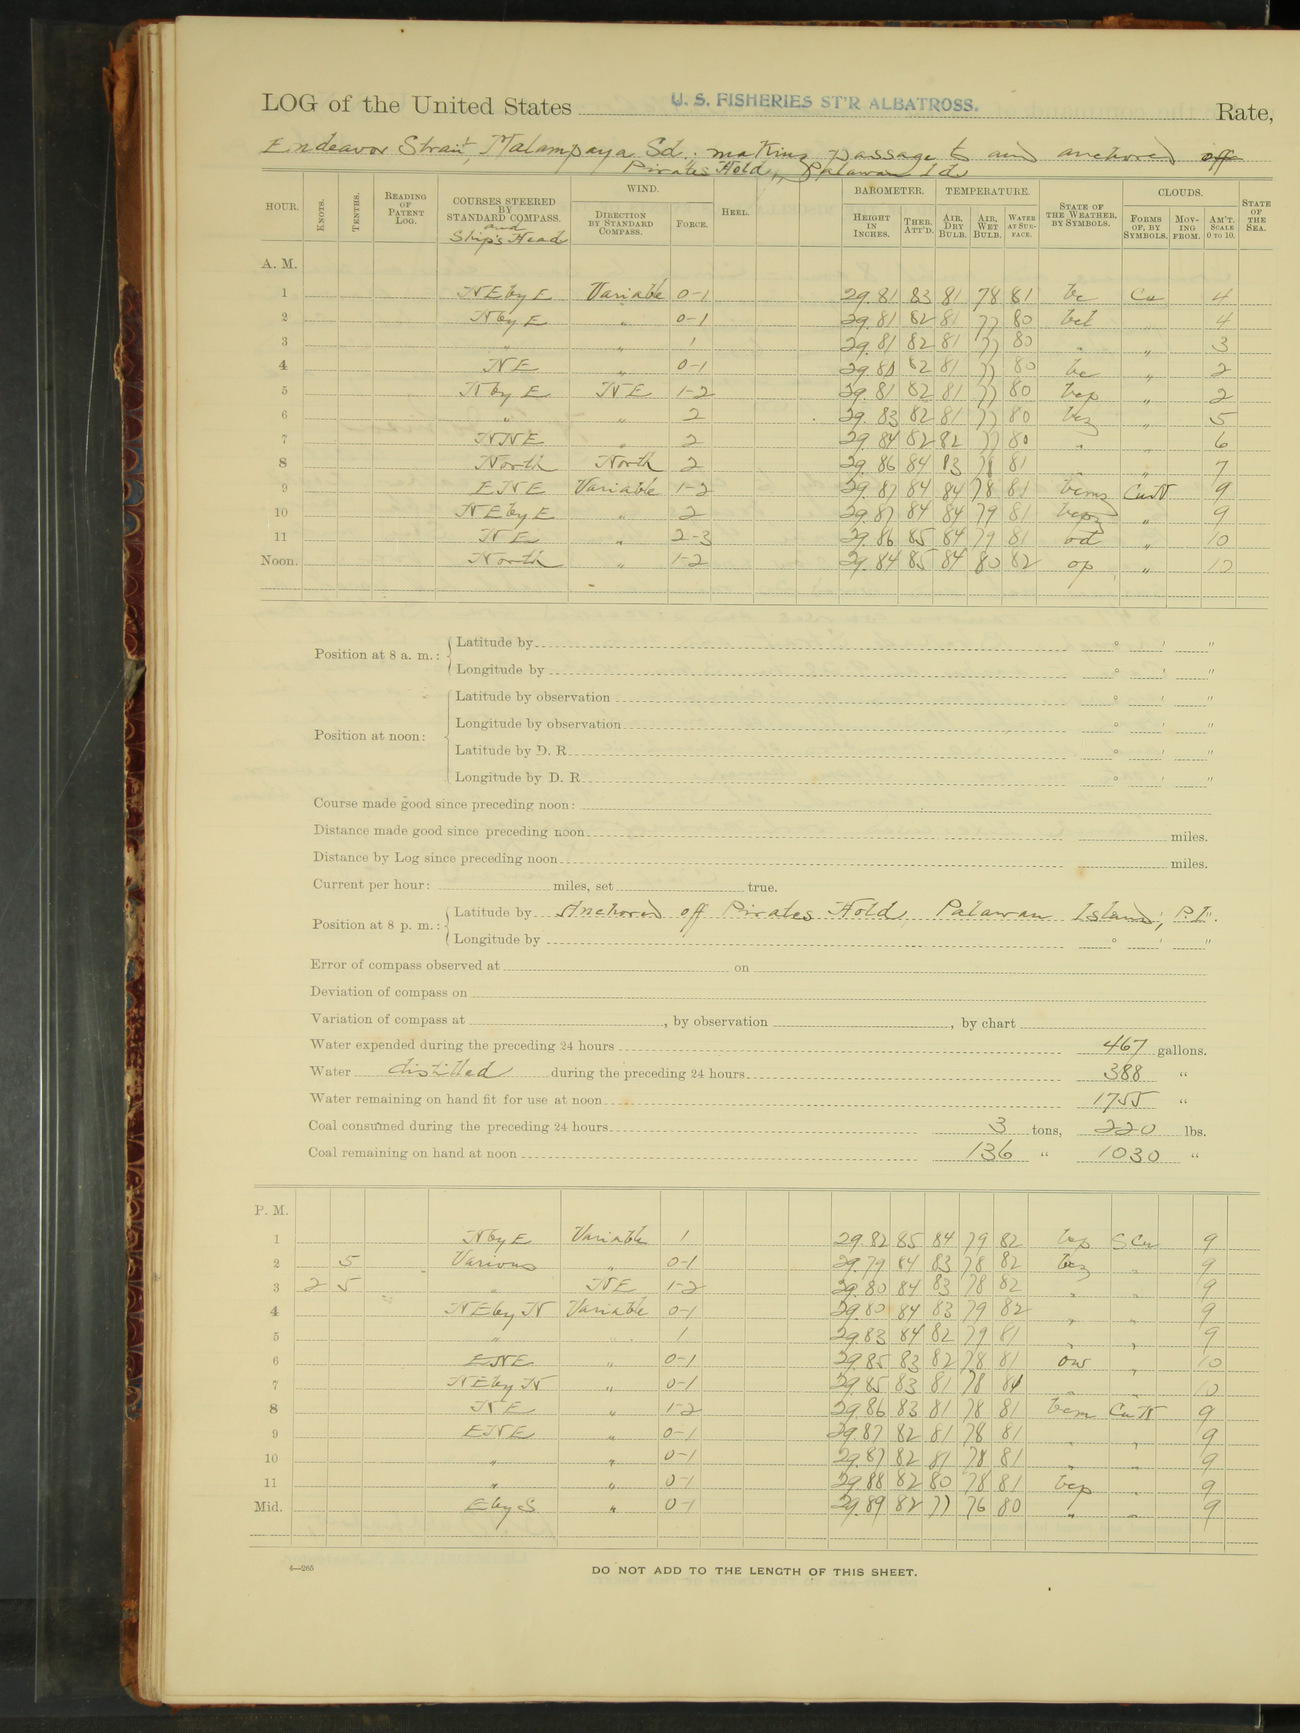 LOG of the United States U. S. FISHERIES ST'R ALBATROSS. Rate,
Endeavor Strait, Malampaya Sd.: making passage to and anchored off
Pirates Hold, Palawan Id.
HOUR. KNOTS. TENTHS. READING OF PATENT LOG. COURSES STEERED BY STANDARD COMPASS. and Ship's Head WIND. DIRECTION BY STANDARD COMPASS. FORCE. HEEL. BAROMETER. HEIGHT IN INCHES. THER. ATT'D. TEMPERATURE. AIR, DRY BULB. AIR, WET BULB. WATER AT SURFACE. STATE OF THE WEATHER, BY SYMBOLS. CLOUDS. FORMS OF, BY SYMBOLS. MOVING FROM. AM'T. SCALE 0 TO 10. STATE OF THE SEA.
A. M.
1 NE by E Variable 0-1 29.81 83 81 78 81 bc Cu 4
2 N by E " 0-1 29.81 82 81 77 80 bcl " 4
3 " " 1 29.81 82 81 77 80 " " 3
4 NE " 0-1 29.80 82 81 77 80 bc " 2
5 N by E NE 1-2 29.81 82 81 77 80 bcp " 2
6 " " 2 29.83 82 81 77 80 bcz " 5
7 NNE " 2 29.84 82 82 77 80 " " 6
8 North North 2 29.86 84 83 78 81 " " 7
9 ENE Variable 1-2 29.87 84 84 78 81 bcmz CuN 9
10 NE by E " 2 29.87 84 84 79 81 " 9
11 NE " 2-3 29.86 85 84 79 81 od " 10
Noon. North " 1-2 29.84 85 84 80 82 op " 10
Position at 8 a. m.: Latitude by ° ' "
Longitude by ° ' "
Position at noon: Latitude by observation ° ' "
Longitude by observation ° ' "
Latitude by D. R. ° ' "
Longitude by D. R. ° ' "
Course made good since preceding noon:
Distance made good since preceding noon miles.
Distance by Log since preceding noon miles.
Current per hour: miles, set true.
Position at 8 p. m.: Latitude by Anchored off Pirates Hold, Palawan Island, P.I.
Longitude by ° ' "
Error of compass observed at on
Deviation of compass on
Variation of compass at , by observation , by chart
Water expended during the preceding 24 hours 467 gallons.
Water distilled during the preceding 24 hours 388 "
Water remaining on hand fit for use at noon 1755 "
Coal consumed during the preceding 24 hours 3 tons, 220 lbs.
Coal remaining on hand at noon 136 " 1030 "
P. M.
1 N by E Variable 1 29.82 85 84 79 82 bcp SCu 9
2 5 Various " 0-1 29.79 84 83 78 82 bcz " 9
3 2 5 " NE 1-2 29.80 84 83 78 82 " " 9
4 NE by N Variable 0-1 29.80 84 83 79 82 " " 9
5 " " 1 29.83 84 82 79 81 " " 9
6 ENE " 0-1 29.85 83 82 78 81 ow " 10
7 NE by N " 0-1 29.85 83 81 78 81 " " 10
8 NE " 1-2 29.86 83 81 78 81 bcm CuN 9
9 ENE " 0-1 29.87 82 81 78 81 " " 9
10 " " 0-1 29.87 82 81 78 81 " " 9
11 " " 0-1 29.88 82 80 78 81 bcp " 9
Mid. E by S " 0-1 29.89 82 77 76 80 " " 9
4—265
DO NOT ADD TO THE LENGTH OF THIS SHEET.